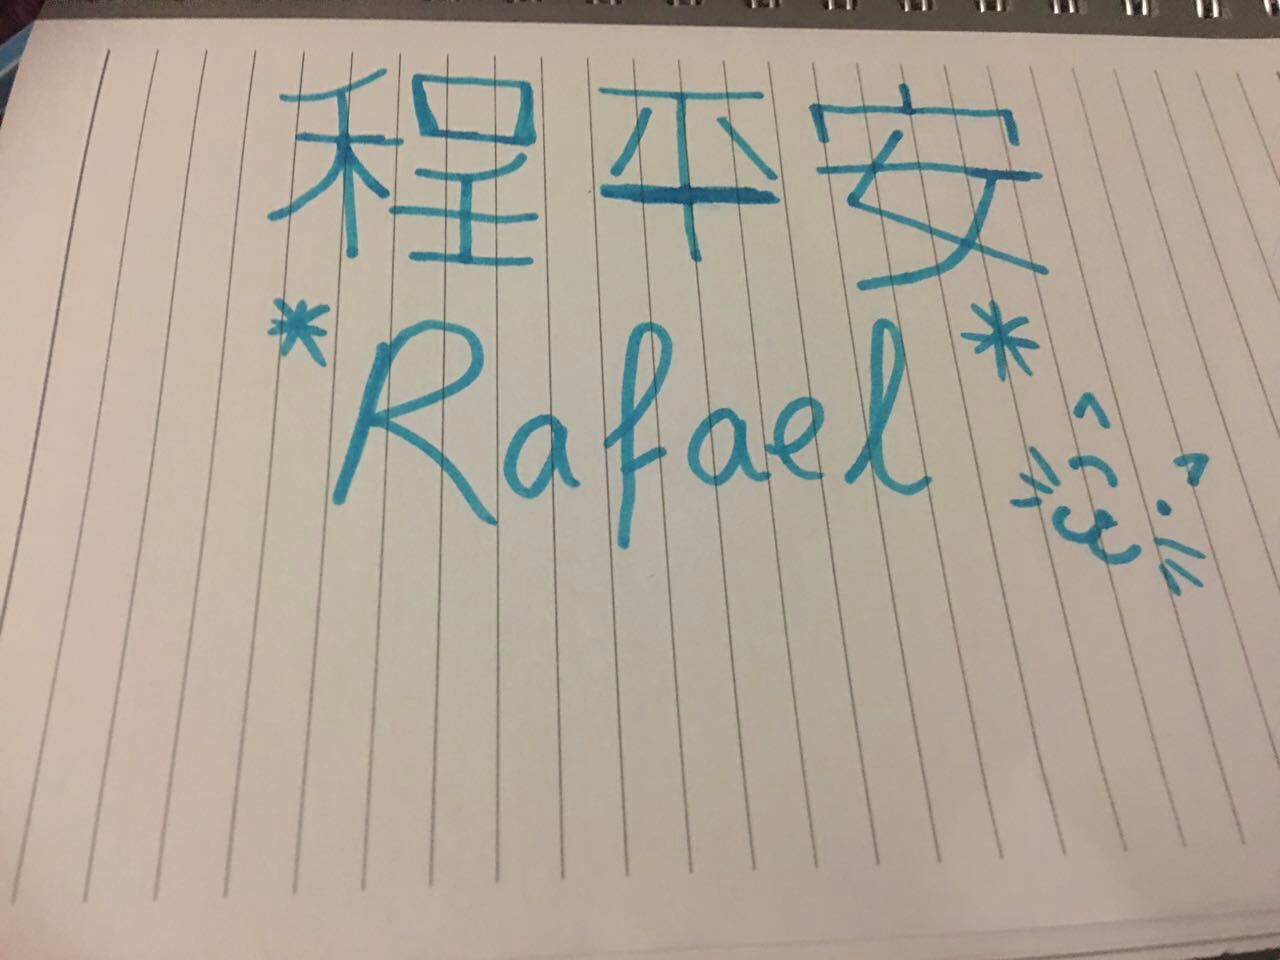 程平安
*Rafael*